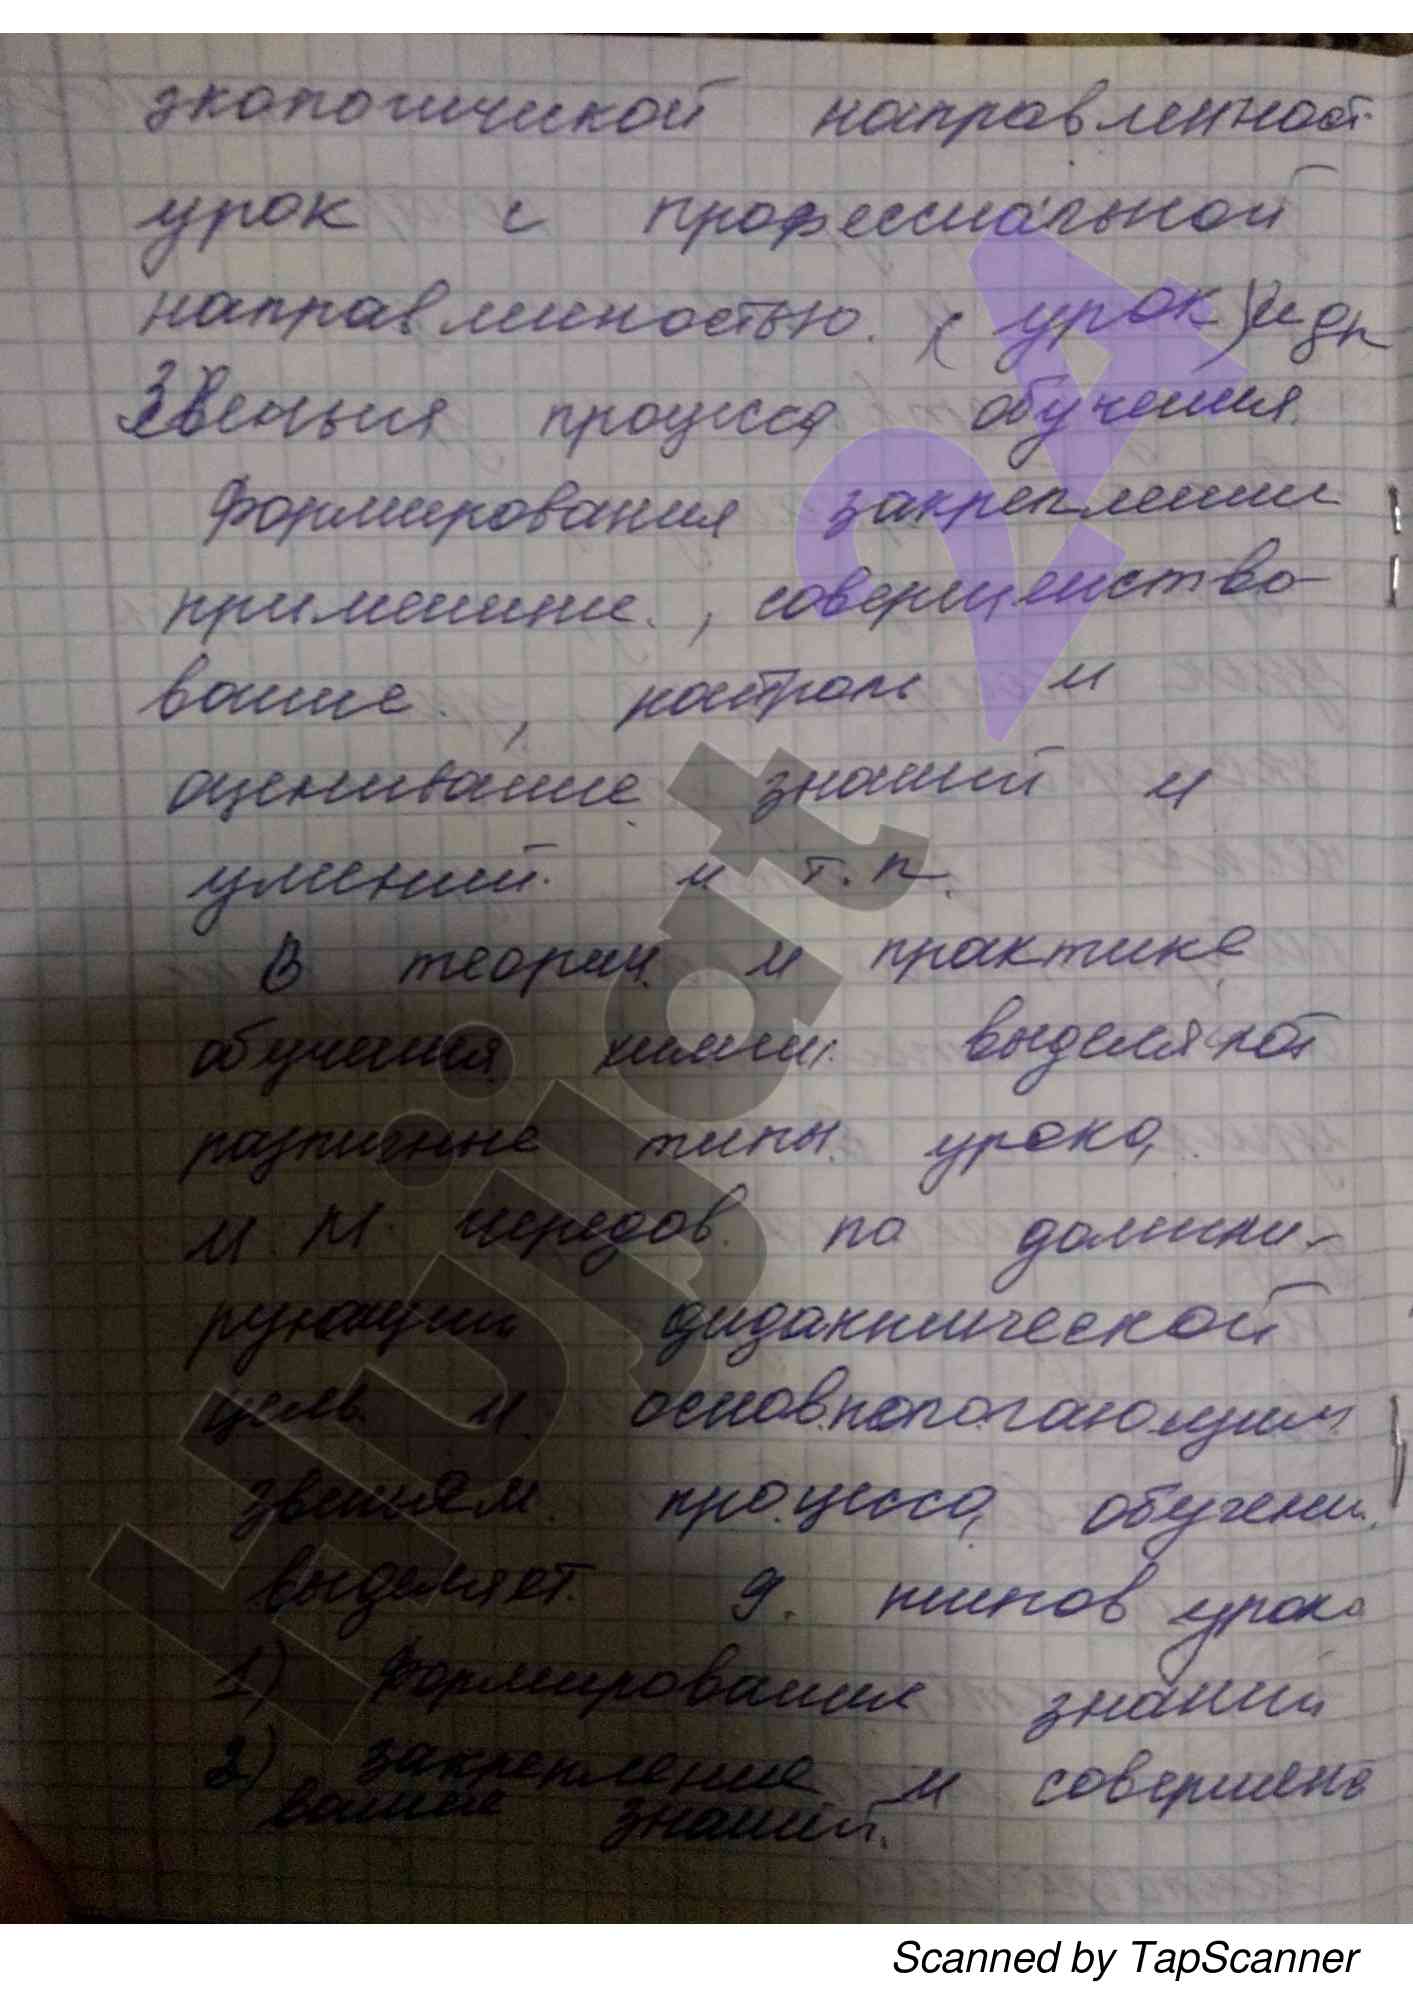 экологичикой направленност
урок с професиальной
направленностью. (урок) и др
Звенья процесса обучения.
Формирования закреплении
применение, совершенство-
вание, контроль и
оценивание знаний и
умений. и т.п.
В теории и практике
обучения химии выделяют
различные типы урока,
И.М. чередов по домини-
рующим дидактической
цели и основнопологающим
звеньям процесса обучени
выделяет 9. типов урока
1) Формирования знаний
2) закрепление и совершенс
вание знаний.
Hujjat 24
Scanned by TapScanner